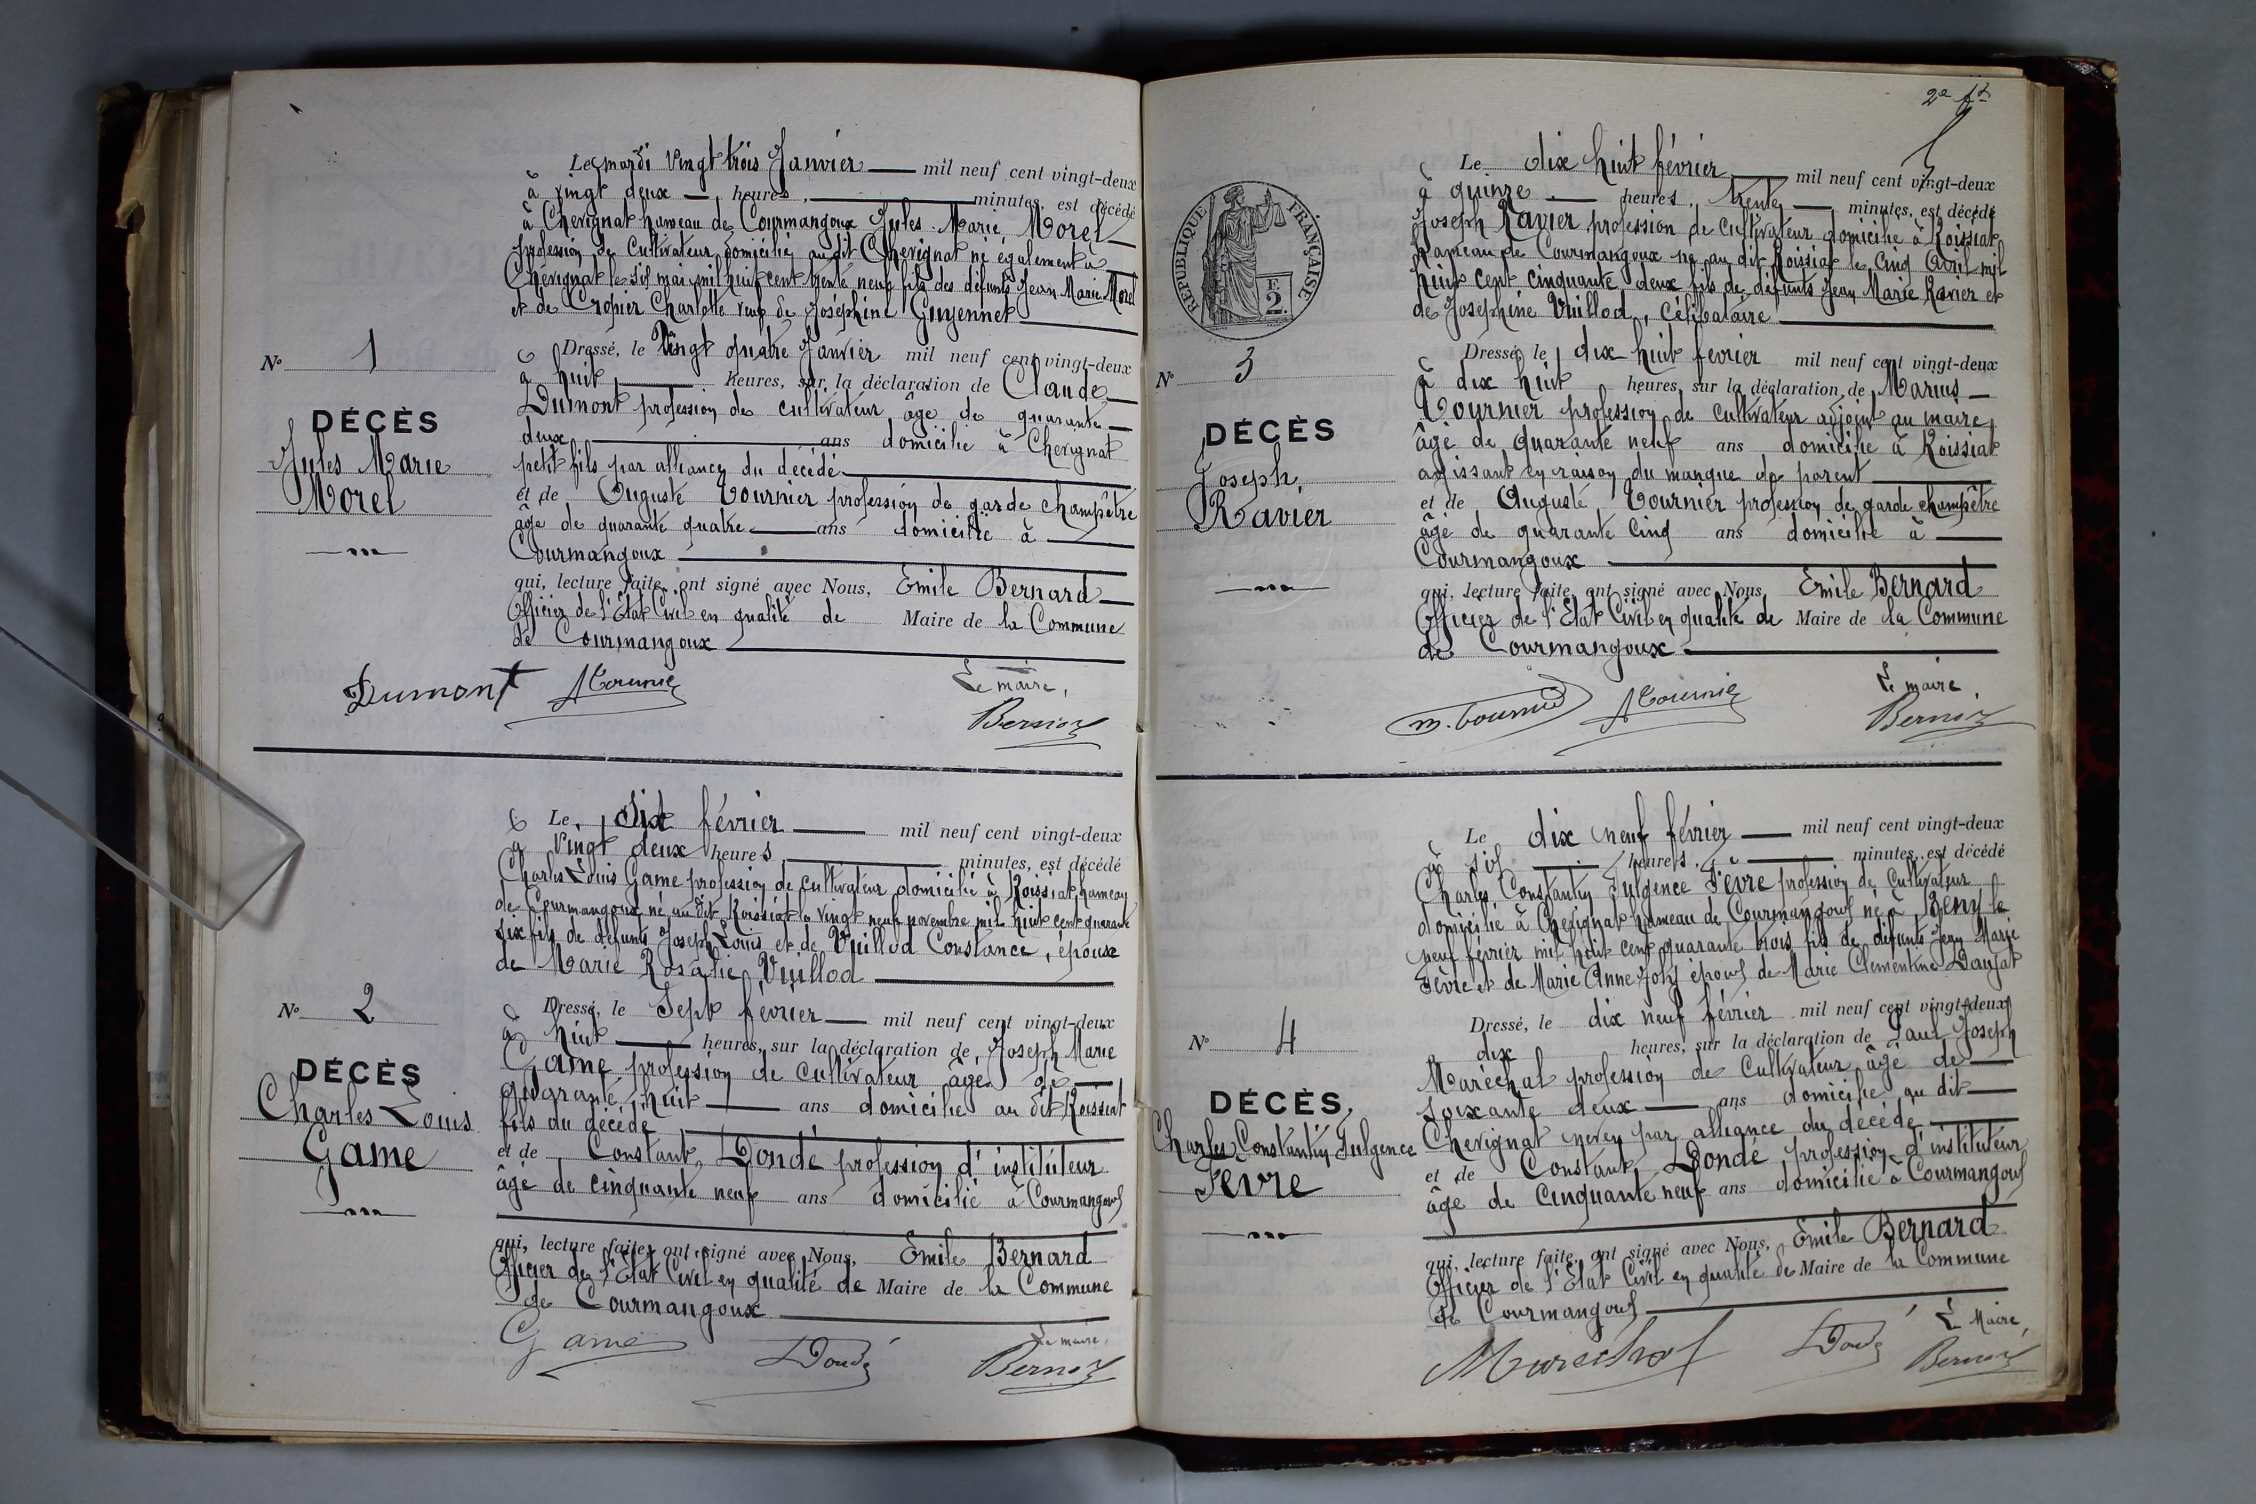 Le mardi vingt trois Janvier mil neuf cent vingt-deux
à vingt deux heures, minutes, est décédé
à Chevignat hameau de Courmangoux Jules Marie Morel
profession de cultivateur domicilié au dit Chevignat né également à
Chevignat le six mai mil huit cent trente neuf fils des défunts Jean Marie Morel
et de Cropier Charlotte veuf de Joséphine Guyennet
N° 1
DÉCÈS
Jules Marie
Morel
Dressé, le Vingt quatre Janvier mil neuf cent vingt-deux
à huit heures, sur la déclaration de Claude
Dumont profession de cultivateur âgé de quarante
deux ans domicilié à Chevignat
petit fils par alliance du décédé
et de Auguste Tournier profession de garde champêtre
âgé de quarante quatre ans domicilié à
Courmangoux
qui, lecture faite, ont signé avec Nous, Emile Bernard
Officier de l'Etat Civil en qualité de Maire de la Commune
de Courmangoux
Dumont ATournier Le maire,
Bernard
Le Six février mil neuf cent vingt-deux
à vingt deux heures minutes, est décédé
Charles Louis Game profession de cultivateur domicilié à Roissiat hameau
de Courmangoux né au dit Roissiat le vingt neuf novembre mil huit cent quarante
six fils de défunts Joseph Louis et de Vuillod Constance, époux
de Marie Rosalie Vuillod
N° 2
DÉCÈS
Charles Louis
Game
Dressé, le Sept février mil neuf cent vingt-deux
à huit heures, sur la déclaration de Joseph Marie
Game profession de cultivateur âgé de
quarante huit ans domicilié au dit Roissiat
fils du décédé
et de Constant Dondé profession d'instituteur
âgé de cinquante neuf ans domicilié à Courmangoux
qui, lecture faite, ont signé avec Nous, Emile Bernard
Officier de l'Etat Civil en qualité de Maire de la Commune
de Courmangoux
Game Dondé Le maire,
Bernard
2e ft
RÉPUBLIQUE FRANÇAISE
F.
2.
Le dix huit février mil neuf cent vingt-deux
à quinze heures, trente minutes, est décédé
Joseph Ravier profession de cultivateur domicilié à Roissiat
hameau de Courmangoux né au dit Roissiat le cinq avril mil
huit cent cinquante deux fils de défunts Jean Marie Ravier et
de Joséphine Vuillod, célibataire
N° 3
DÉCÈS
Joseph
Ravier
Dressé le dix huit février mil neuf cent vingt-deux
à dix huit heures, sur la déclaration de Marius
Tournier profession de cultivateur adjoint au maire,
âgé de quarante neuf ans domicilié à Roissiat
agissant en raison du manque de parent
et de Auguste Tournier profession de garde champêtre
âgé de quarante cinq ans domicilié à
Courmangoux
qui, lecture faite, ont signé avec Nous, Emile Bernard
Officier de l'Etat Civil en qualité de Maire de la Commune
de Courmangoux
m. Tournier ATournier Le maire,
Bernard
Le dix neuf février mil neuf cent vingt-deux
à six heures, minutes, est décédé
Charles Constantin Fulgence Fèvre profession de cultivateur
domicilié à Chevignat hameau de Courmangoux né à Bény le
neuf février mil huit cent quarante trois fils de défunts Jean Marie
Fèvre et de Marie Anne Joly époux de Marie Clémentine Daujat
N° 4
DÉCÈS
Charles Constantin Fulgence
Fèvre
Dressé, le dix neuf février mil neuf cent vingt-deux
dix heures, sur la déclaration de Paul Joseph
Maréchal profession de cultivateur âgé de
soixante deux ans domicilié au dit
Chevignat neveu par alliance du décédé
et de Constant Dondé profession d'instituteur
âgé de cinquante neuf ans domicilié à Courmangoux
qui, lecture faite, ont signé avec Nous, Emile Bernard
Officier de l'Etat Civil en qualité de Maire de la Commune
de Courmangoux
Maréchal Dondé Le Maire,
Bernard